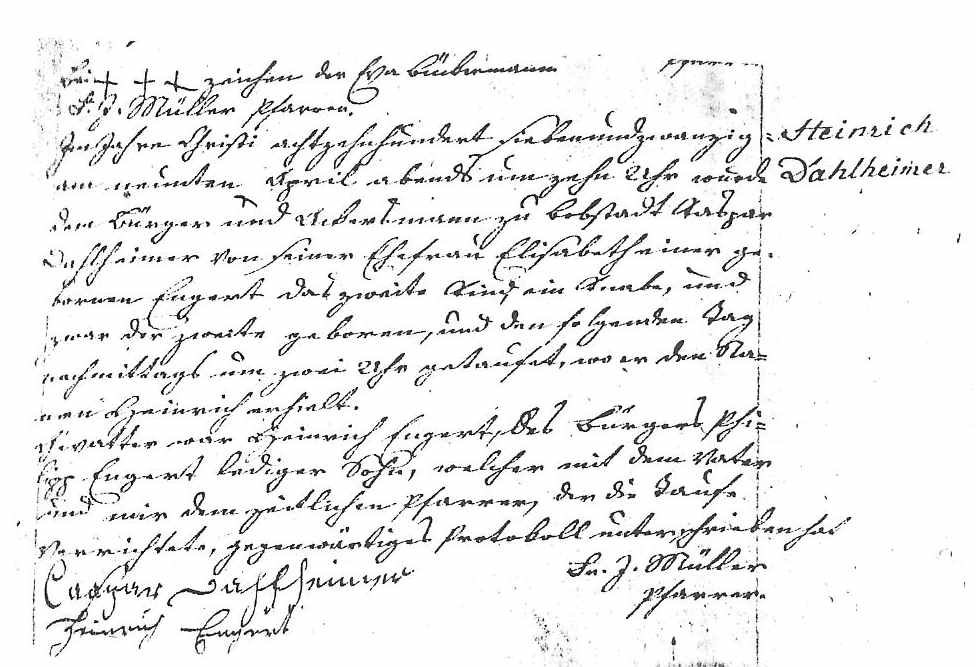 + + + zeichen der Eva Büdermann
Fr. J. Müller Pfarrer.
Im Jahre Christi achtzehnhundert siebenundzwanzig = Heinrich
am neunten April abends um zehn Uhr wurde Dahlheimer
dem Bürger und Ackersmann zu Bobstadt Kaspar
Dahlheimer von seiner Ehefrau Elisabetha einer ge-
bornen Engert das zweite Kind ein Knabe, und
zwar der zweite geboren, und den folgenden Tag
nachmittags um zwei Uhr getaufet, wo er den Na=
men Heinrich erhielt.
Gevatter war Heinrich Engert, des Bürgers Phi=
lipp Engert lediger Sohn, welcher mit dem Vater
und mir dem zeitlichen Pfarrer, der die Taufe
verrichtete, gegenwärtiges Protokoll unterschrieben hat
Caspar Dahlheimer Fr. J. Müller
Pfarrer.
Heinrich Engert